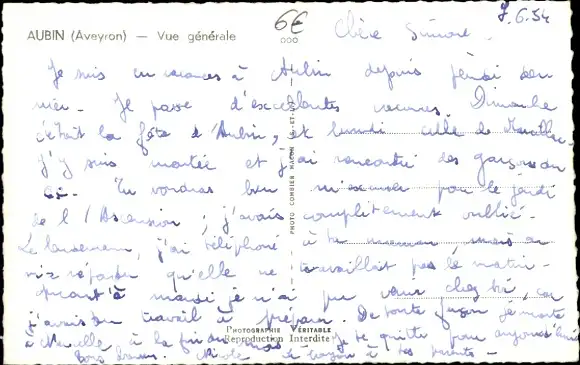 AUBIN (Aveyron) — Vue générale
6€
7.6.54
Chère Simone.
Je suis en vacances à Aubin depuis jeudi
Je passe d'excellentes vacances. Dimanche
c'était la fête d'Aubin, et lundi celle de
j'y suis montée et j'ai rencontré des garçons
Tu voudras bien m'excuser pour le jeudi
de l'Ascension ; j'avais complètement oublié.
Le lendemain, j'ai téléphoné à ta maman mais on
m'a répondu qu'elle ne travaillait pas le matin.
quant à mardi je n'ai pu venir chez toi, car
j'avais du travail à préparer. De toute façon je monte
à la fin du mois. Je te quitte pour aujourd'hui
Bons baisers. Nicole. à tes parents -
PHOTO COMBIER MACON
PHOTOGRAPHIE VÉRITABLE
Reproduction Interdite